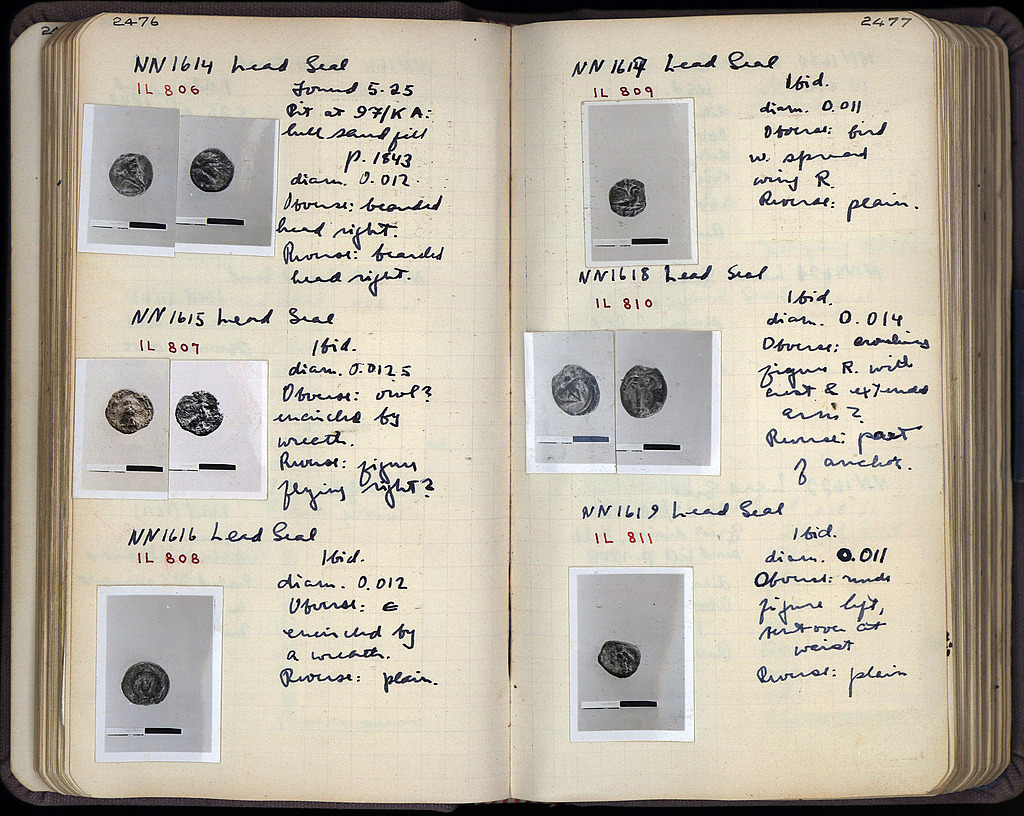 2476
NN1614 Lead Seal
IL 806
Found 5.25
Pit at 97/KA:
fill
p. 1843
diam. 0.012.
Obverse: bearded
head right.
Reverse: bearded
head right.
NN1615 Lead Seal
IL 807
Ibid.
diam. 0.0125
Obverse: owl?
encircled by
wreath.
Reverse: figure
flying right?
NN1616 Lead Seal
IL 808
Ibid.
diam. 0.012
Obverse: ϵ
encircled by
a wreath.
Reverse: plain.
2477
NN1617 Lead Seal
IL 809
Ibid.
diam. 0.011
Obverse: bird
w. spread
wing R.
Reverse: plain.
NN1618 Lead Seal
IL 810
Ibid.
diam. 0.014
Obverse:
figure R. with
& extended
arms?
Reverse: part
of anchor.
NN1619 Lead Seal
IL 811
Ibid.
diam. 0.011
Obverse: nude
figure left,
bent over at
waist
Reverse: plain